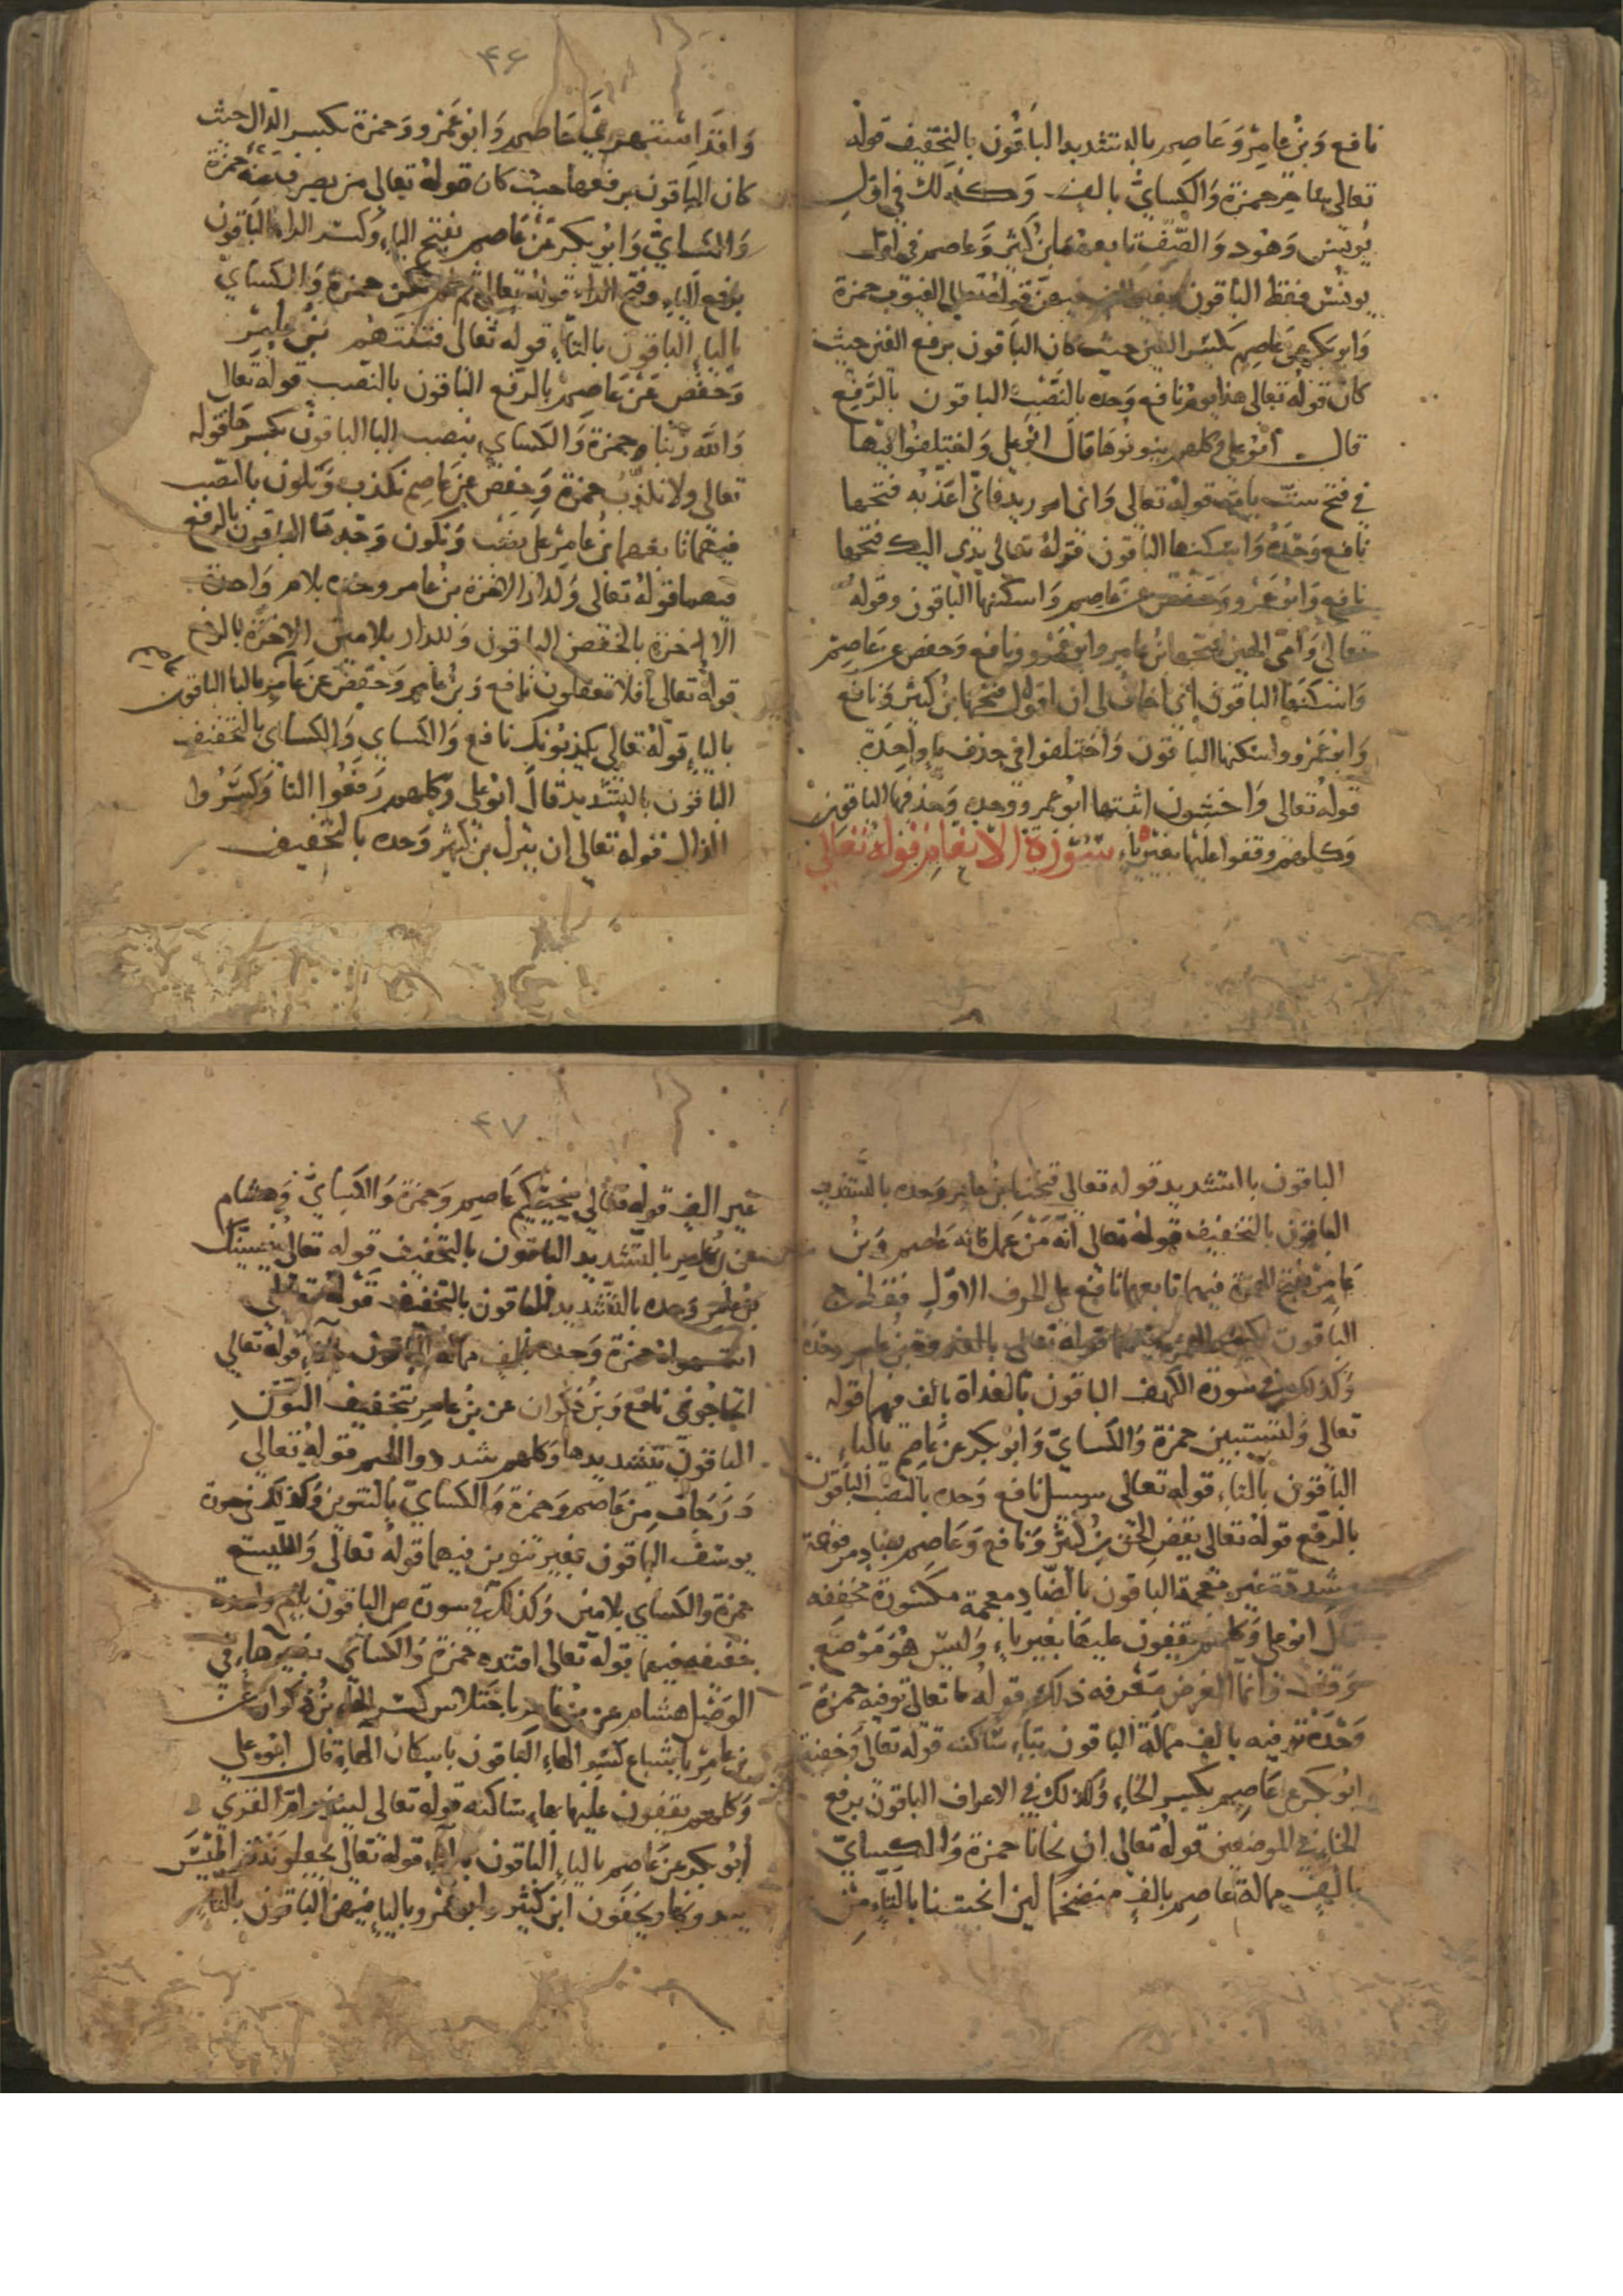 نافع وَبنُ عامِرٍ وَعَاصِم بالتشديد الباقُون بالتخفيف قوله
تعالى ساحر حمزة وَالكسايُّ بالف وَكذلك في اوّلِ
يُونُس وَهُود وَالصّف تابعهما بن كثير وَعاصم في اوّل
يونُس فقط الباقون قوله تعالى الغيوب حمزة
وَابو بكر عن عاصِم بكسر الغين حيث كان الباقون برفع الغين حيث
كان قوله تعالى هذا يومُ نافع وَحده بالنَّصْب الباقون بالرَّفع
قال ابُو علي وكلهم ينونوها قال ابُو علي وَاختلفوا فيها
في فتح ستّ ياات قوله تعالى وَاني اريد فاني اعذبه فتحها
نافع وَحْدَهُ وَاسكنها الباقون قوله تعالى يدي اليك فتحها
نافع وَابُو عَمْرو وَحَفص عن عَاصِم وَاسكنها الباقون وقوله
تعالى وَامّى الهين فتحها بنُ عامِر وابو عَمْرو ونافع وَحفص عن عَاصِم
وَاسكنها الباقون اني اخاف لي ان اقول فتحها بن كثير وَنافع
وَابو عَمْرو واسكنها الباقون وَاختلفوا في حذف ياءٍ واحِدَةٍ
قوله تعالى وَاخشون اثبتها ابُو عمرو وَحده وَحذفها الباقون
وَكلهم وقفوا عليها بغير ياءٍ سُوْرَة الانعام قوله تعالى
۴۶
وَلقد استهزي عَاصِم وَابو عَمْرو وَحمزة بكسر الدّال حيث
كان الباقون برفعها حيث كان قوله تعالى من يصرف عَنْهُ حمزة
وَالكسايُّ وَابُو بكر عَن عَاصم بفتح الياءِ وَكسر الراء الباقون
برفع الياءِ وفتح الراءِ قوله تعالى ثم لم تكن حمزة وَالكسايُّ
بالياءِ الباقون بالتاءِ قوله تعالى فتنتهم بن كثير
وَحفص عَن عَاصِم بالرفع الباقون بالنصب قوله تعالى
وَالله ربّنا حمزة وَالكساي بنصب البا الباقون بكسرها قوله
تعالى ولا نكذّبُ حمزة وَحفص عن عَاصِم نكذب وَنكون بالنصب
فيهما تابعهما بنُ عامِر على نصب وَنكون وَحده الباقون بالرفع
فيهما قوله تعالى وَلدار الاخرة بنُ عامر وحده بلام وَاحدة
الاخرة بالخفض الباقون وَللدار بلامين الاخرة بالرفع
قوله تعالى افلا تعقلون نافع وَبنُ عامر وَحفص عن عَاصِم بالتا الباقون
بالياءِ قوله تعالى يكذبُونك نافع وَالكساي وَالكساي بالتخفيف
الباقون بالتشديد قال ابُو علي وَكلهم رَفعُوا اليا وَكسَرُوا
الذال قوله تعالى ان ينزل بن كثير وَحده بالتخفيف
الباقون بالتشديد قوله تعالى فتحنا بنُ عامر وَحده بالتشديد
الباقون بالتخفيف قوله تعالى انّه مَنْ عَمل فانّه عَاصم وَبنُ
عَامِر بفتح الهمزة فيهما تابعهما نافع على الحرف الاوّلِ فقط
الباقون بكسر الهمزة فيهما قوله تعالى بالغدوة بنُ عامر وحده
وَكذلك في سورة الكهف الباقون بالغداة بالف فيهما قوله
تعالى وَلتستبين حمزة وَالكسايّ وَابو بكر عن عَاصِم بالياءِ
الباقون بالتاءِ قوله تعالى سبيل نافع وَحده بالنصب الباقون
بالرفع قوله تعالى يقصِ الحق بن كثير وَنافع وَعَاصِم بصاد مرفوعة
مشددة غير معجمة الباقون بالضاد معجمة مكسُورة مخففه
قال ابو علي وَكلهم يقفون عليها بغير ياءٍ وَليس هُوَ مَوْضِع
وقف وَانما الغرض مَعْرفه ذلك قوله تعالى توفيه حمزة
وَحْدَهُ توفيه بالف ممالَة الباقون بتاءٍ ساكنه قوله تعالى وَخفية
ابُو بكر عن عَاصِم بكسر الخاءِ وَكذلك في الاعراف الباقون برفع
الخاءِ في الموضعين قوله تعالى لئن نجانا حمزة وَالكسايّ
بالف ممالة عاصِم بالف مفخما لئن انجيتنا بالتاءِ من
۴۷
غير الف قوله تعالى ينجيكم عَاصِم وَحمزة وَالكسايُّ وَهشام
عن بن عامر بالتشديد الباقون بالتخفيف قوله تعالى ينسينّك
بن عامر وَحده بالتّشديد الباقون بالتخفيف قوله تعالى
استهواه حمزة وَحده بالف ممالة الباقون بالتاءِ قوله تعالى
اتحاجُوني نافع وَبنُ ذكوان عن بن عامِر بتخفيف النّونِ
الباقون بتشديدها وَكلهم شددوا الجيم قوله تعالى
دَرَجاتٍ من عَاصم وَحمزة وَالكسايّ بالتنوين وَكذلك في سورة
يوسف الباقون بغير تنوين فيهما قوله تعالى وَالليسع
حمزة والكساي بلامين وَكذلك في سورة ص الباقون بلام واحدة
خفيفه فيهما قوله تعالى اقتده حمزة وَالكسايُّ بغير هاءٍ في
الوَصْل هشام عن بنُ عامر باختلاس كسر الهاءِ بنُ ذكوان عن
بن عامِر باشباع كسر الهاءِ الباقون باسكان الهاءِ قال ابُو علي
وَكلهم يقفون عليها بهاءٍ ساكنه قوله تعالى لينذر امّ القرى
ابُو بكر عن عَاصم بالياءِ الباقون بالتاءِ قوله تعالى يجعلونه قراطيس
يبدونها ويخفون ابن كثير وابو عمرو بالياءِ فيهن الباقون بالتاءِ